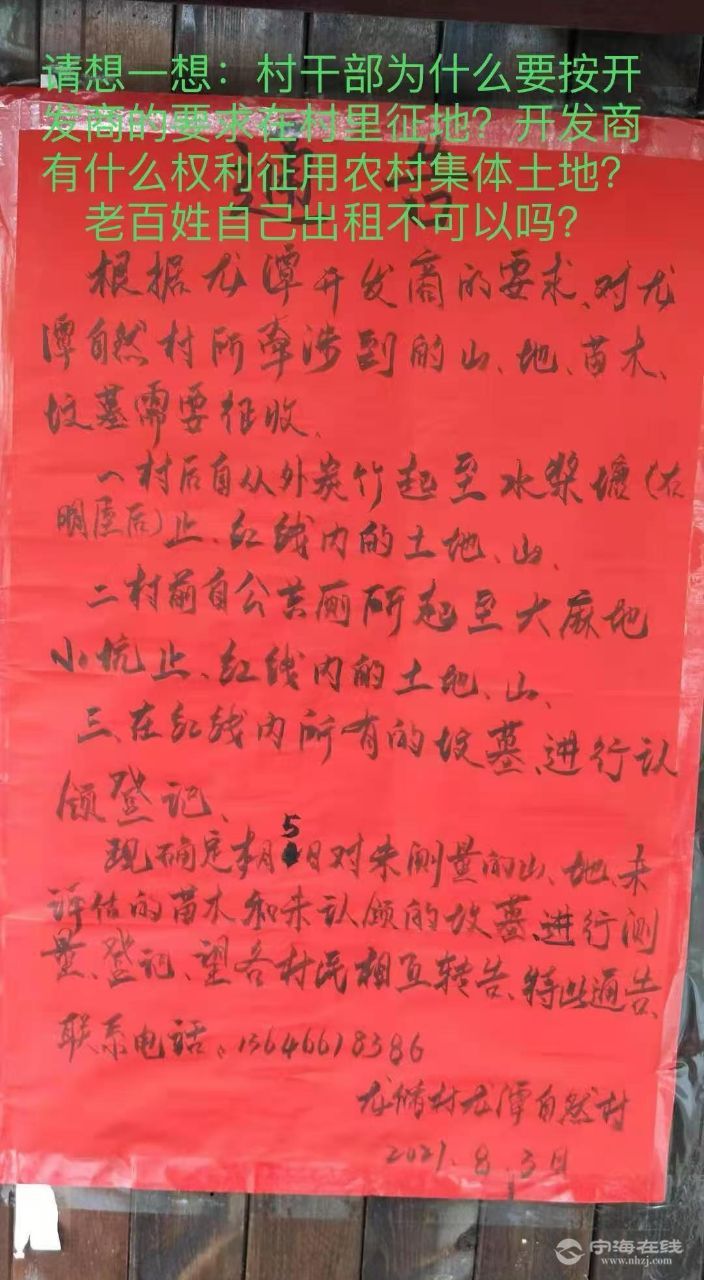 请想一想：村干部为什么要按开
发商的要求在村里征地？开发商
有什么权利征用农村集体土地？
老百姓自己出租不可以吗？
通告
根据龙潭开发商的要求、对龙
潭自然村所牵涉到的山、地、苗木、
坟墓需要征收、
一村后自从外炭竹起至水桨塘(右
明屋后)止、红线内的土地、山、
二村前自公共厕所起至大麻地
小坑止、红线内的土地、山、
三、在红线内所有的坟墓、进行认
领登记、
现确定本月5日对未测量的山、地、未
评估的苗木和未认领的坟墓、进行测
量、登记、望各村民相互转告、特此通告、
联系电话。13646618386
龙 村龙潭自然村
2021.8.3日
宁海在线
www.nhzj.com